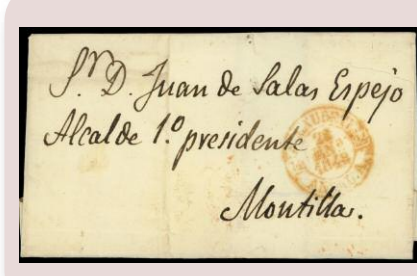 Sr. D. Juan de Salas Espejo
Alcalde 1.º presidente
Montilla.